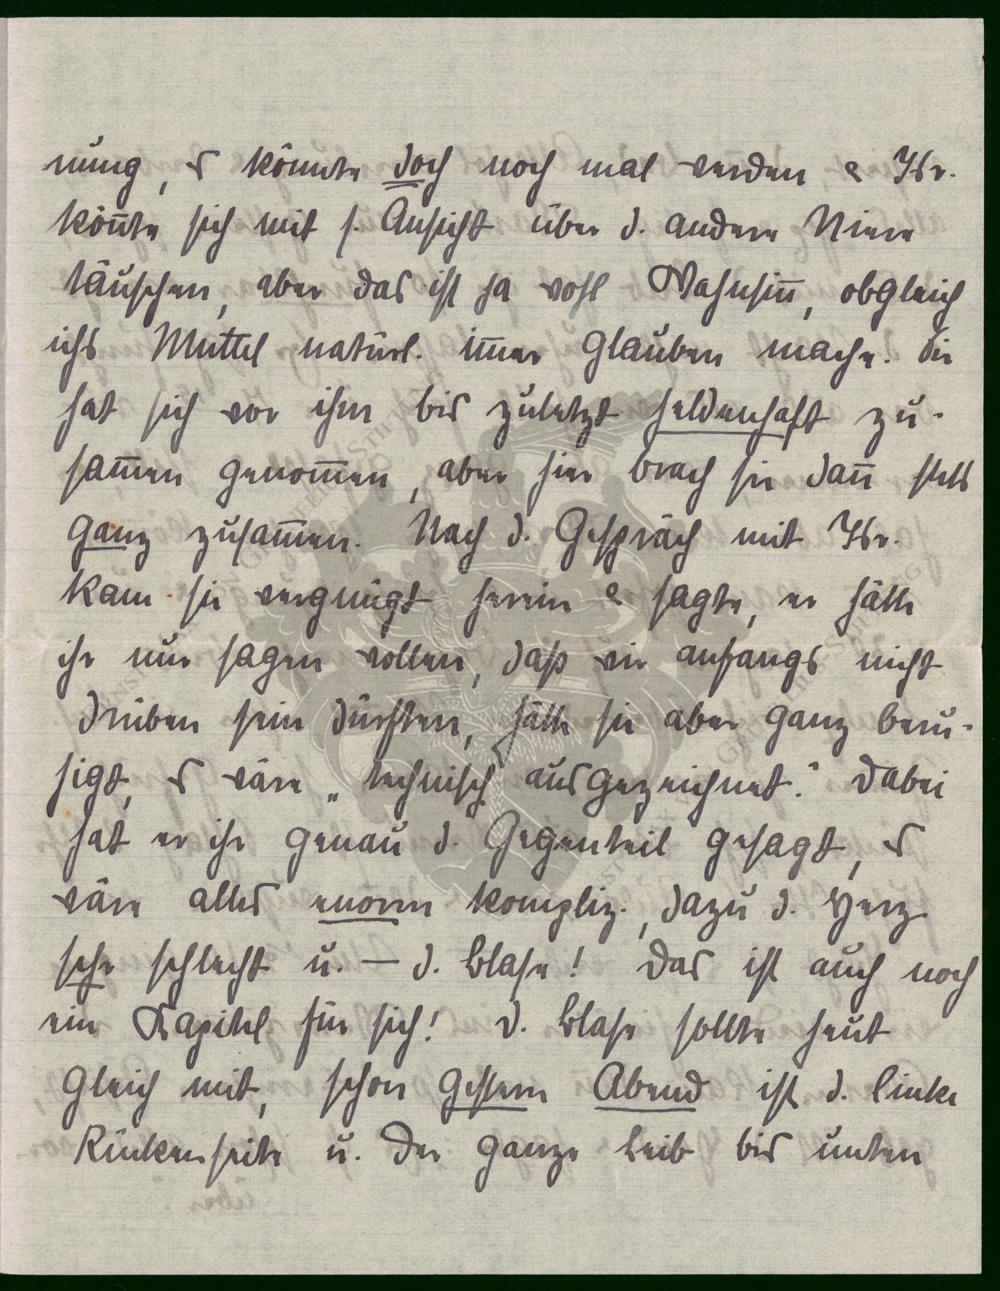 nung, es könnte doch noch mal werden & Isr.
kön̄te sich mit s. Ansicht über d. andere Niere
täuschen, aber das ist ja wohl Wahnsin̄, obgleich
ichs Muttel natürl. im̄er glauben mache. Sie
hat sich vor ihm bis zuletzt heldenhaft zu-
sam̄en genom̄en, aber hier brach sie dan̄ stets
ganz zusam̄en. Nach d. Gespräch mit Isr.
kam sie vergnügt herein & sagte, er hätte
ihr nur sagen wollen, daß wir anfangs nicht
drüben sein dürften, hätte sie aber ganz beru-
higt, es wäre „technisch ausgezeichnet." Dabei
hat er ihr genau d. Gegenteil gesagt, es
wäre alles enorm kompliz., dazu d. Herz
sehr schlecht u. — d. Blase! Das ist auch noch
ein Kapitel für sich! D. Blase sollte heut
gleich mit, schon gestern Abend ist d. linke
Rückenseite u. der ganze Leib bis unten